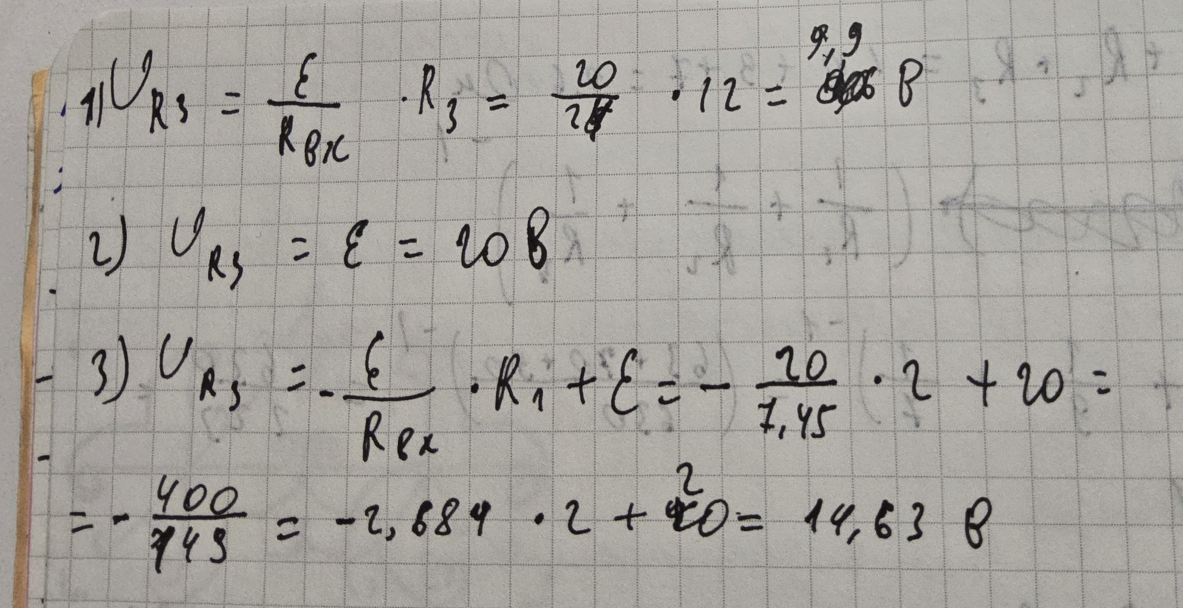 1) U_R3 = ε/Rвх · R3 = 20/24 · 12 = 9,9 В
2) U_R3 = ε = 20 В
3) U_R3 = - ε/Rвх · R1 + ε = - 20/7,45 · 2 + 20 =
= - 400/149 = -2,684 · 2 + 20 = 14,63 В